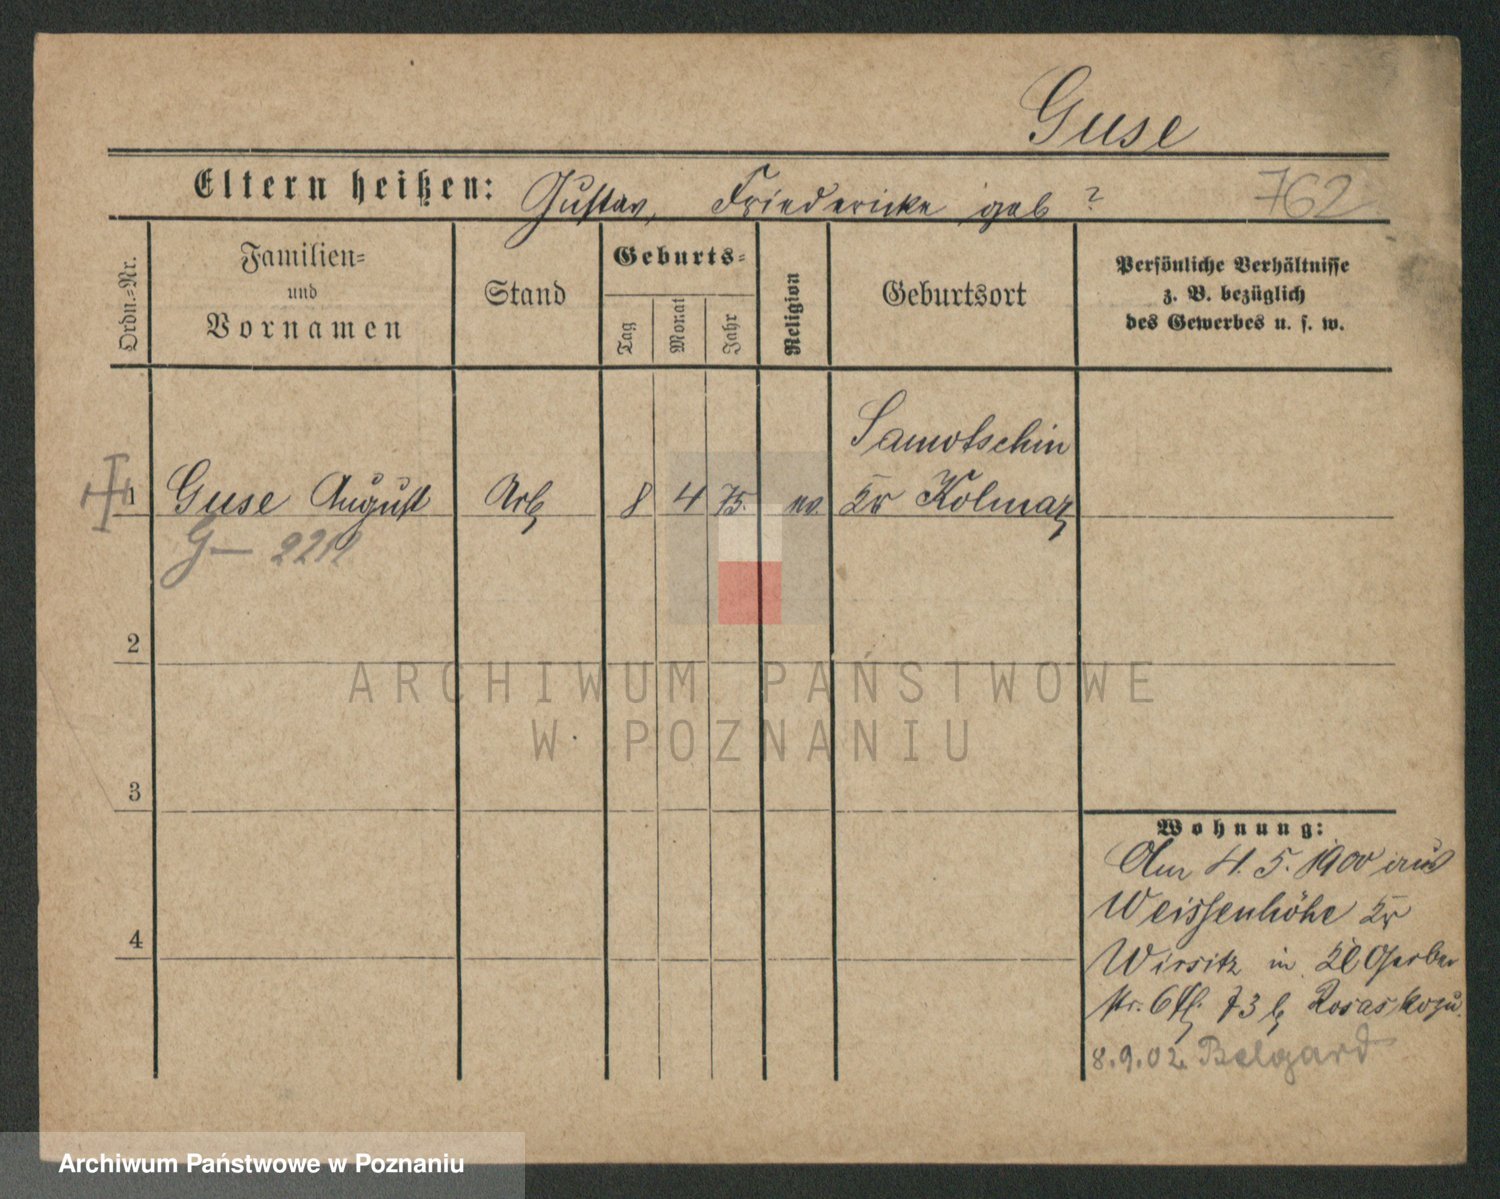 Guse
Eltern heißen: Gustav, Friedericke geb ?
762
Ordn.-Nr.
Familien-
und
Vornamen
Stand
Geburts-
Tag
Monat
Jahr
Religion
Geburtsort
Persönliche Verhältnisse
z. B. bezüglich
des Gewerbes u. s. w.
Samotschin
1 Guse August Arb 8 4 75. ev. Kr Kolmar
G— 2212
2
ARCHIWUM PAŃSTWOWE
W POZNANIU
3
Wohnung:
Am 4. 5. 1900 aus
Weissenhöhe Kr
4
Wirsitz in Kl Gerber
str. 6 73 b
8.9.02. Belgard
Archiwum Państwowe w Poznaniu